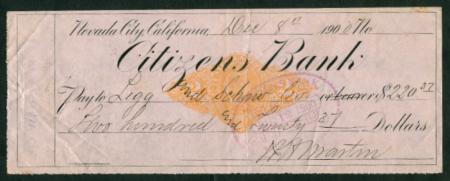 Nevada City, California, Dec 8th 1900 No
Citizens Bank
Pay to Legg and or bearer $220 37
Two hundred and Twenty 37 Dollars
Martin